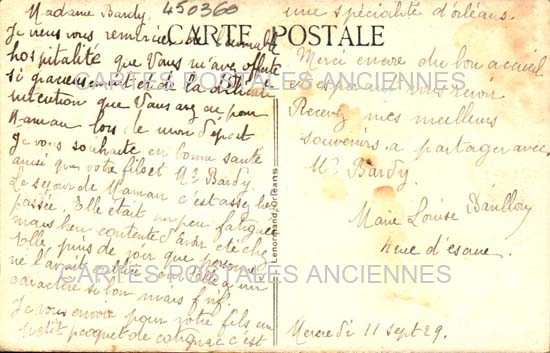 Madame Bardy. 450360
CARTE POSTALE
Je veux vous remercier de l'aimable
hospitalité que Vous m'avez offerte
si gracieusement et de la délicate
intention que Vous avez eu pour
Maman lors de mon départ
Je vous souhaite en bonne santé
ainsi que votre fils et Mr Bardy.
Le séjour de Maman c'est assez bien
passée. Elle était un peu fatiguée
mais bien contente d'avoir été chez
Elle, puis de voir que personne
ne l'avait Elle a un
caractère si bon mais
Je vous envoie pour votre fils un
petit paquet de cotignac c'est
une spécialité d'orléans.
Merci encore du bon accueil
et espérant vous revoir
Recevez mes meilleurs
souvenirs a partager avec
Mr Bardy.
Marie Louise
Mercredi 11 sept 29.
Lenormand, Orléans
CARTES POSTALES ANCIENNES
CARTES POSTALES ANCIENNES